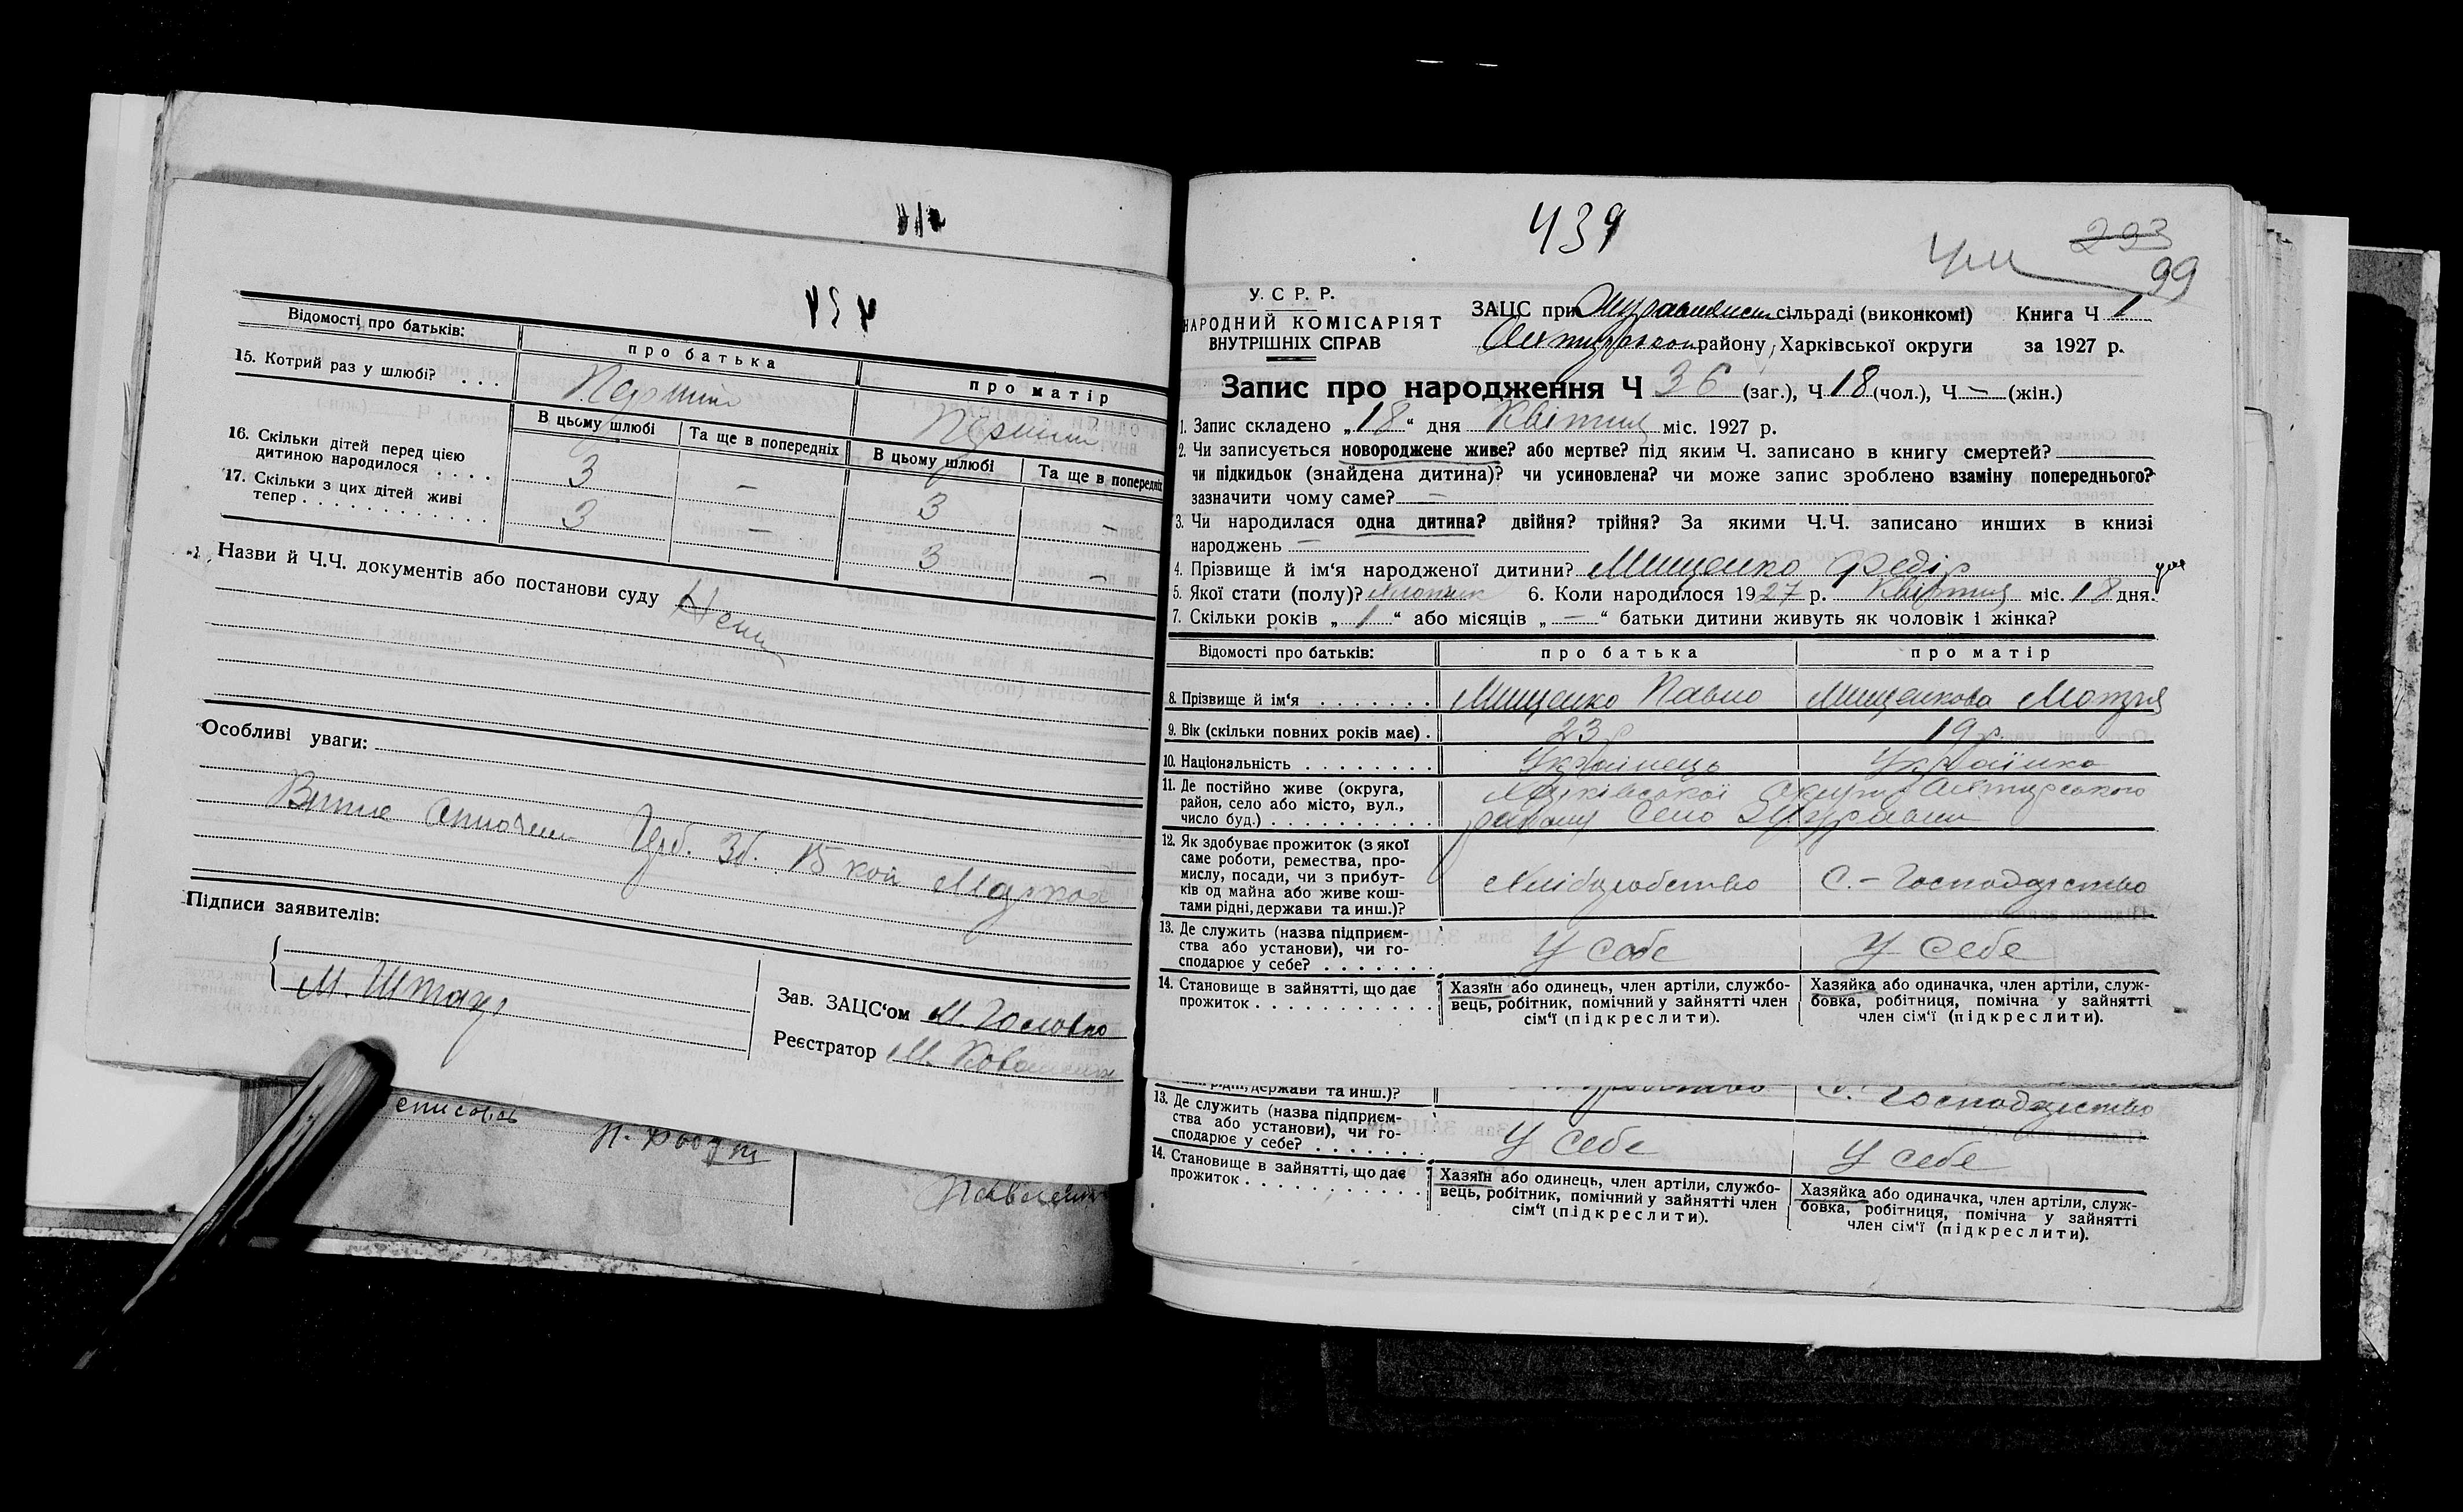 Відомості про батьків:
про батька
про матір
15. Котрий раз у шлюбі? . . .
Перший
Перший
В цьому шлюбі
Та ще в попередніх
В цьому шлюбі
Та ще в попередніх
16. Скільки дітей перед цією
дитиною народилося . . . .
3 — 3 —
17. Скільки з цих дітей живі
тепер . . . . . . . . . . . .
3 — 3 —
Назви й Ч.Ч. документів або постанови суду
Особливі уваги:
Підписи заявителів:
М. Штогр
Зав. ЗАЦС'ом М. Головко
Реєстратор М.
439
293
99
У. С Р. Р.
НАРОДНИЙ КОМІСАРІЯТ
ВНУТРІШНІХ СПРАВ
ЗАЦС при сільраді (виконкомі) Книга Ч 1
району, Харківської округи за 1927 р.
Запис про народження Ч 36 (заг.), Ч 18 (чол.), Ч — (жін.)
1. Запис складено „18“ дня Квітня міс. 1927 р.
2. Чи записується новороджене живе? або мертве? під яким Ч. записано в книгу смертей?
чи підкидьок (знайдена дитина)? чи усиновлена? чи може запис зроблено взаміну попереднього?
зазначити чому саме? —
3. Чи народилася одна дитина? двійня? трійня? За якими Ч.Ч. записано инших в книзі
народжень —
4. Прізвище й ім'я народженої дитини? Мищенко Федір
5. Якої стати (полу)? хлопчик 6. Коли народилося 1927 р. Квітня міс. 18 дня.
7. Скільки років „1“ або місяців „—“ батьки дитини живуть як чоловік і жінка?
Відомості про батьків:
про батька
про матір
8. Прізвище й ім'я . . . . . . .
Мищенко Павло
Мищенкова Мотря
9. Вік (скільки повних років має) .
23 р
19 р.
10. Національність . . . . . . . .
Українець
Українка
11. Де постійно живе (округа,
район, село або місто, вул.,
число буд.) . . . . . . . . . .
Харківської Округи Охтирського
району Село Журавни
12. Як здобуває прожиток (з якої
саме роботи, ремества, про-
мислу, посади, чи з прибут-
ків од майна або живе кош-
тами рідні, держави та инш.)?
Хліборобство
С.-Господарство
13. Де служить (назва підприєм-
ства або установи), чи го-
сподарює у себе? . . . . . . .
У себе
У себе
14. Становище в зайнятті, що дає
прожиток . . . . . . . . . . .
Хазяїн або одинець, член артіли, службо-
вець, робітник, помічний у зайнятті член
сім'ї (підкреслити).
Хазяйка або одиначка, член артіли, служ-
бовка, робітниця, помічна у зайнятті
член сім'ї (підкреслити).
рідні, держави та инш.)?
С. Господарство
13. Де служить (назва підприєм-
ства або установи), чи го-
сподарює у себе? . . . . . . .
У себе
У себе
14. Становище в зайнятті, що дає
прожиток . . . . . . . . . . .
Хазяїн або одинець, член артіли, службо-
вець, робітник, помічний у зайнятті член
сім'ї (підкреслити).
Хазяйка або одиначка, член артіли, служ-
бовка, робітниця, помічна у зайнятті
член сім'ї (підкреслити).